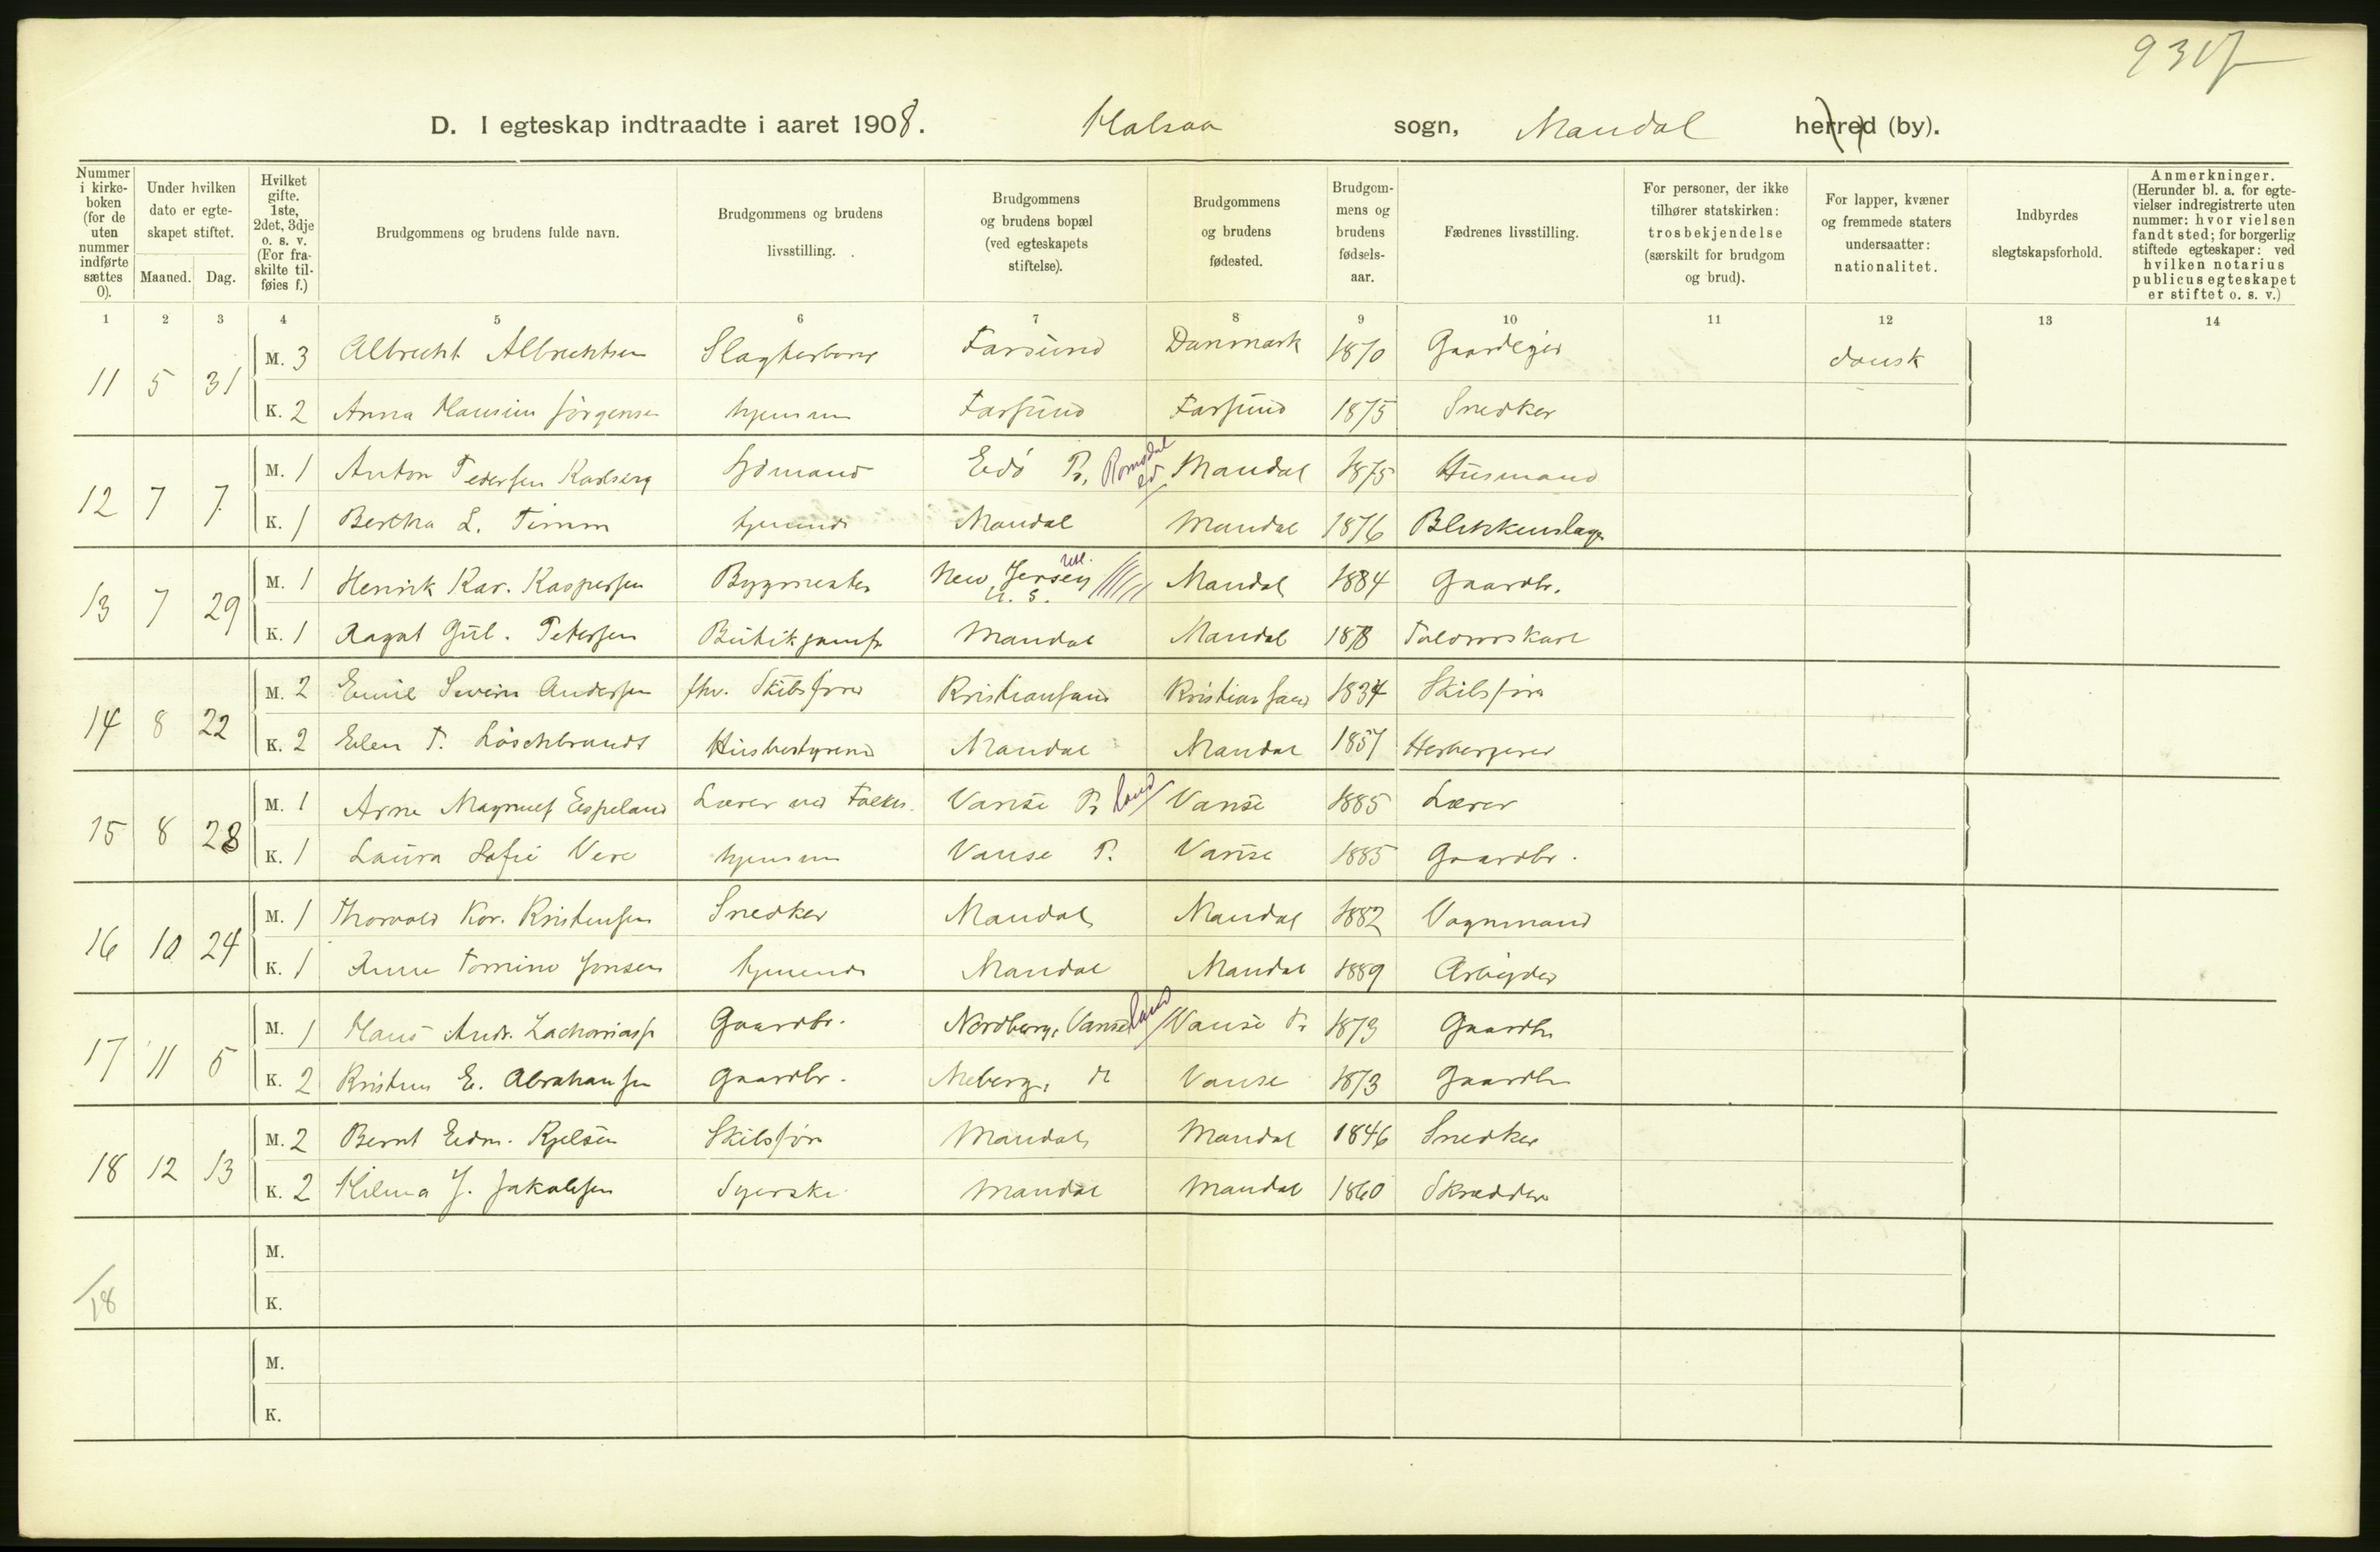 931
D. I egteskap indtraadte i aaret 1908. Halsaa sogn, Mandal herred (by).
Nummer i kirkeboken (for de uten nummer indførte sættes 0).
Under hvilken dato er egteskapet stiftet.
Maaned. Dag.
Hvilket gifte. 1ste, 2det, 3dje o. s. v. (For fraskilte tilføies f.)
Brudgommens og brudens fulde navn.
Brudgommens og brudens livsstilling.
Brudgommens og brudens bopæl (ved egteskapets stiftelse).
Brudgommens og brudens fødested.
Brudgommens og brudens fødselsaar.
Fædrenes livsstilling.
For personer, der ikke tilhører statskirken: trosbekjendelse (særskilt for brudgom og brud).
For lapper, kvæner og fremmede staters undersaatter: nationalitet.
Indbyrdes slegtskapsforhold.
Anmerkninger. (Herunder bl. a. for egtevielser indregistrerte uten nummer: hvor vielsen fandt sted; for borgerlig stiftede egteskaper: ved hvilken notarius publicus egteskapet er stiftet o. s. v.)
1 2 3 4 5 6 7 8 9 10 11 12 13 14
11 5 31 M. 3 Albrecht Albrechtsen Farsund Danmark 1870 Gaardeger dansk
K. 2 Anna Hansine Jörgensen hjemme Farsund Farsund 1875 Snedker
12 7 7 M. 1 Anton Pedersen Karlsberg Sjömand Edö Pr. Romsdal Mandal 1875 Husmand
K. 1 Bertha L. Timm hjemme Mandal Mandal 1876 Blikkenslager
13 7 29 M. 1 Henrik Kar. Kaspersen Bygmester New Jersey U. S. Mandal 1884 Gaardbr.
K. 1 Ragnh Gul. Petersen Butikjomfr Mandal Mandal 1878
14 8 22 M. 2 Emil Severin Andersen fhv. Skibsfører Kristiansand Kristiansand 1834 Skibsfører
K. 2 Elen T. Löschbrandt Husbestyrerinde Mandal Mandal 1857 Herbergerer
15 8 28 M. 1 Arne Magnus Espeland Lærer ved Folkes. Vanse Pr land Vanse 1885 Lærer
K. 1 Laura Sofie Vere hjemme Vanse P. Vanse 1885 Gaardbr.
16 10 24 M. 1 Thorvald Kor. Kristensen Snedker Mandal Mandal 1882 Vognmand
K. 1 Anne Tomine Jonsen hjemme Mandal Mandal 1889 Arbeider
17 11 5 M. 1 Hans Andr. Zachariass. Gaardbr. Nordberg, Vanse land Vanse Pr 1873 Gaardbr
K. 2 Kristine E. Abrahamsen Gaardbr. Meberg, Vanse 1873 Gaardbr
18 12 13 M. 2 Bernt Edm. Kjelsen Skibsfører Mandal Mandal 1846 Snedker
K. 2 Hilma J. Jakobsen Syerske Mandal Mandal 1860 Skrædder
M.
18
K.
M.
K.